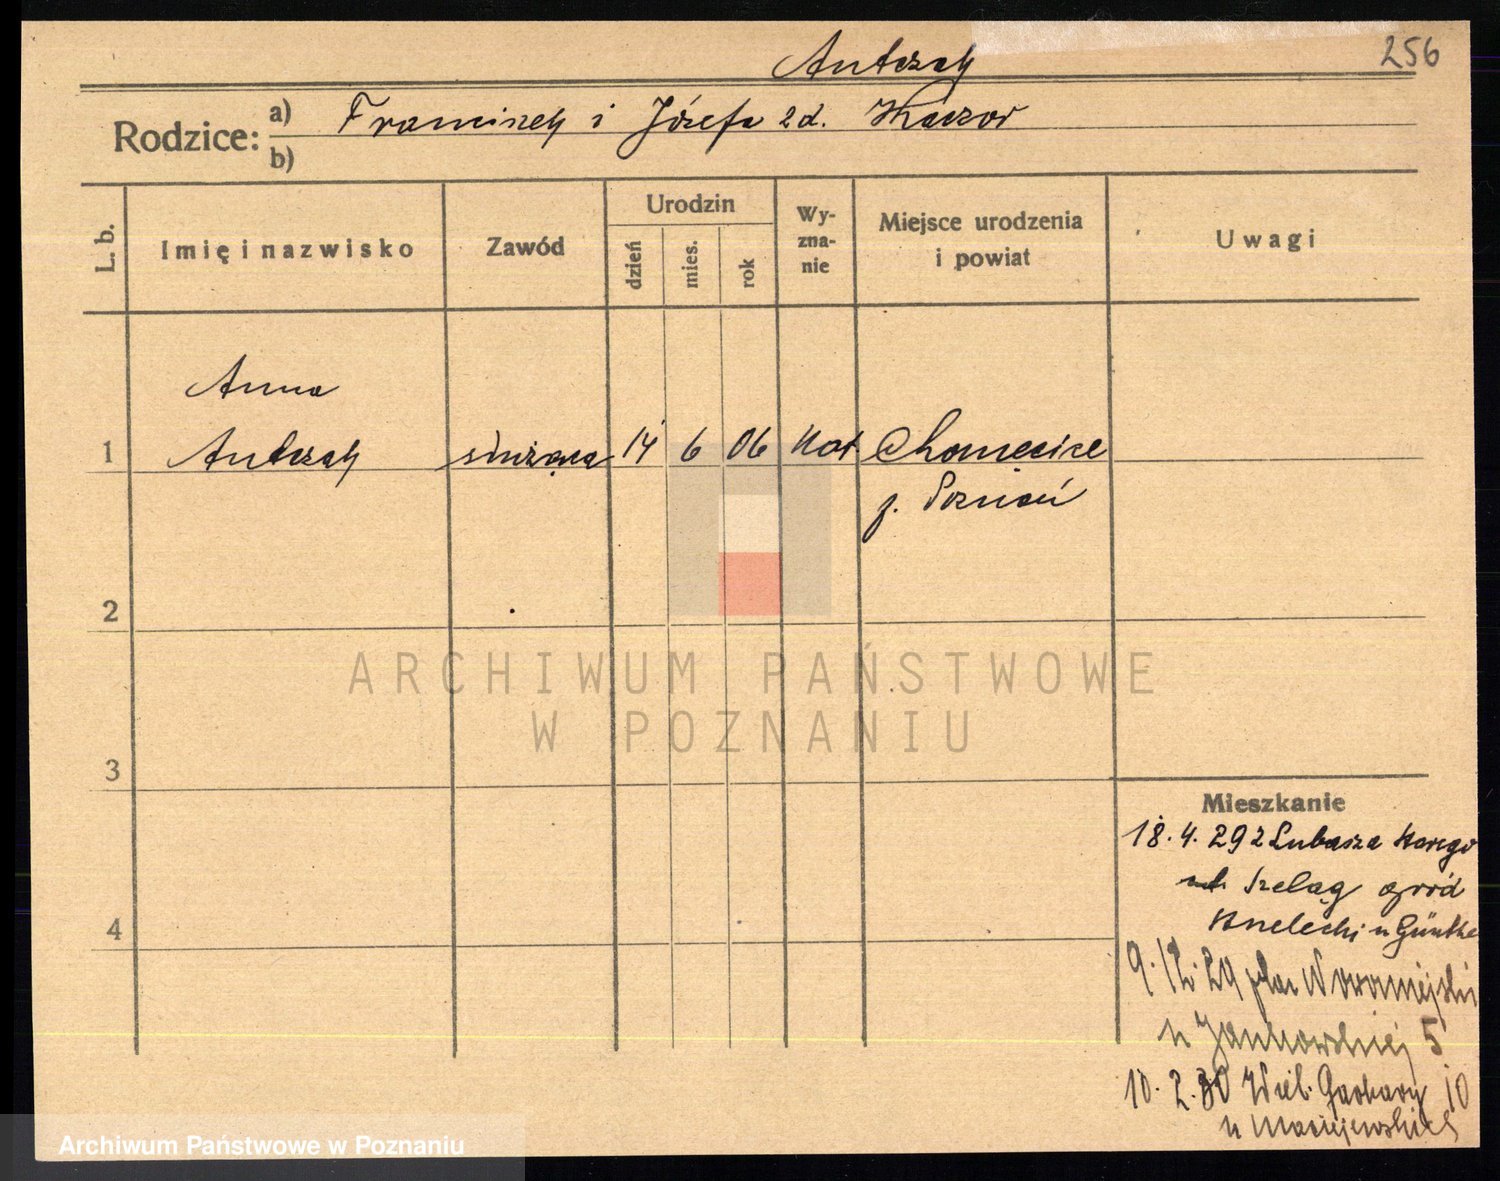 Antczak
256
Rodzice: a) Franciszek i Józefa zd. Kaczor
b)
L. b.
Imię i nazwisko
Zawód
Urodzin
dzień
mies.
rok
Wy-
zna-
nie
Miejsce urodzenia
i powiat
Uwagi
Anna
1 Antczak służąca 14 6 06 kat. Chomęcice
p. Poznań
2
3
4
ARCHIWUM PAŃSTWOWE
W POZNANIU
Mieszkanie
18.4.29 z Lubasza
Szeląg ogród
u Günthe
9.12.29 plac Nowomiejski
u Jannowskiej 5
10.2.30 Wiel. Garbary 10
u Maciejewskiej
Archiwum Państwowe w Poznaniu